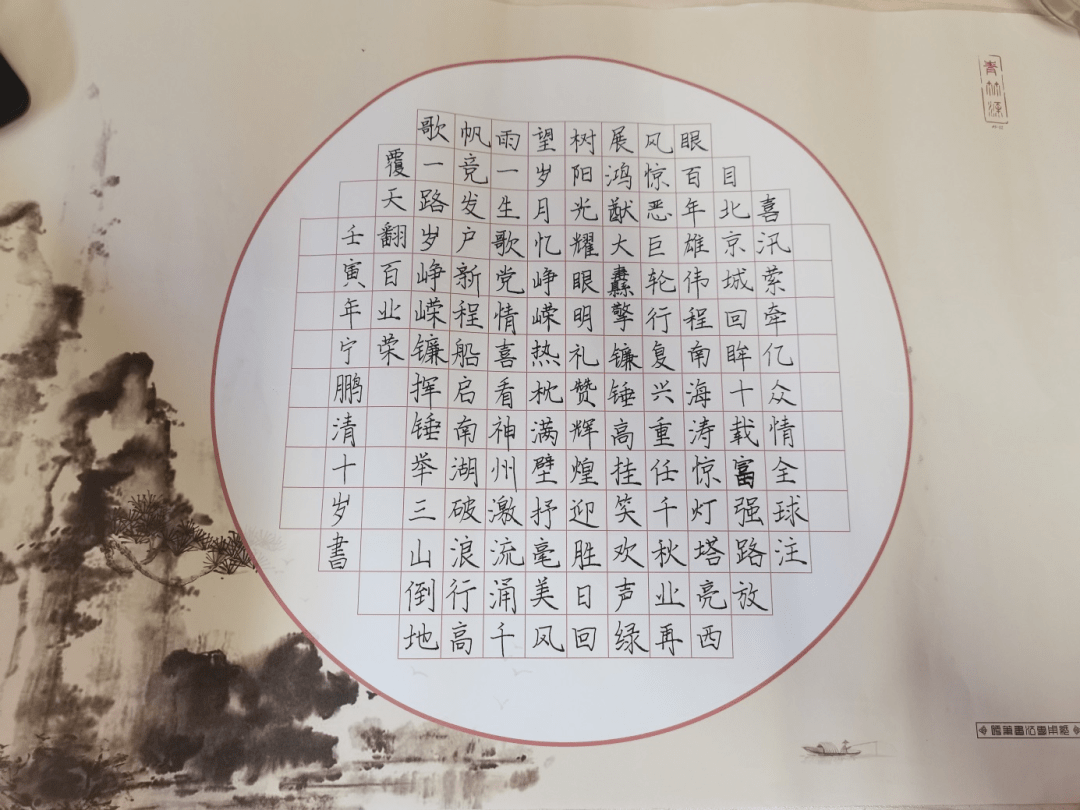 喜汛萦牵亿众情全球注
目北京城回眸十载富强路放
眼百年雄伟程南海涛惊灯塔亮西
风惊恶巨轮行复兴重任千秋业再
展鸿猷大纛擎镰锤高挂笑欢声绿
树阳光耀眼明礼赞辉煌迎胜日回
望岁月忆峥嵘热枕满壁抒毫美风
雨一生歌党情喜看神州激流涌千
帆竞发户新程船启南湖破浪行高
歌一路岁峥嵘镰挥锤举三山倒地
覆天翻百业荣
壬寅年宁鹏清十岁書